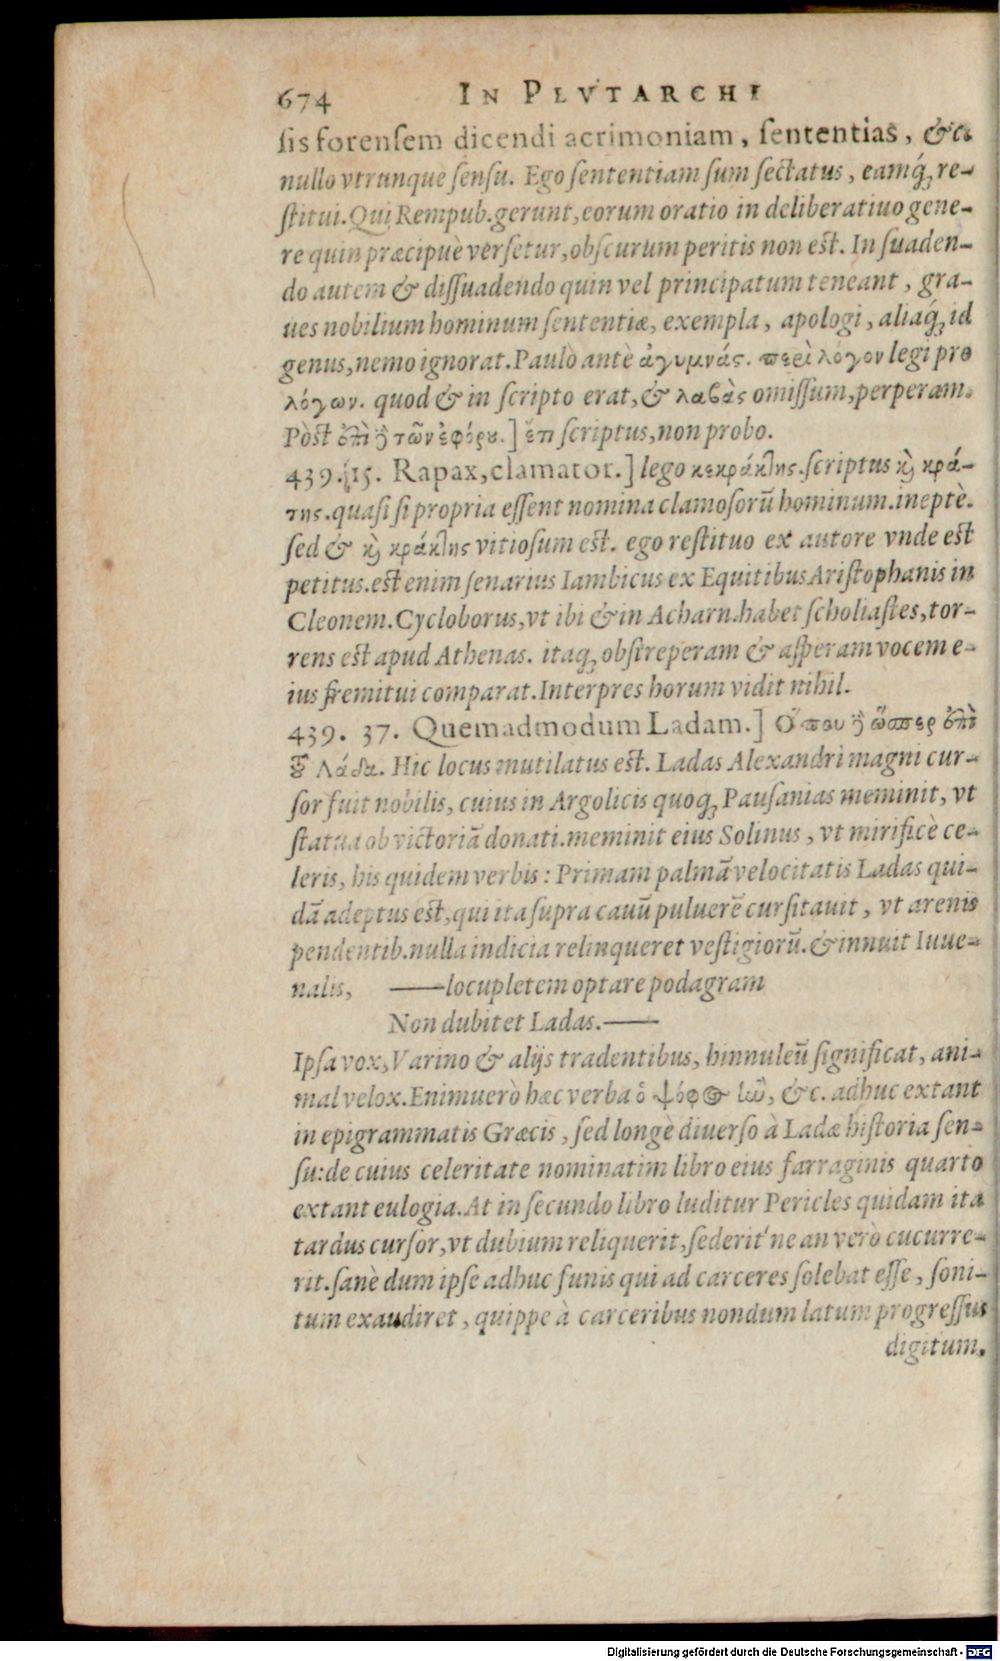 674 IN PLVTARCHI
sis forensem dicendi acrimoniam, sententias, &c.
nullo vtrunque sensu. Ego sententiam sum sectatus, eamq́; re-
stitui. Qui Rempub. gerunt, eorum oratio in deliberatiuo gene-
re quin præcipuè versetur, obscurum peritis non est. In suaden-
do autem & dissuadendo quin vel principatum teneant, gra-
ues nobilium hominum sententiæ, exempla, apologi, aliaq́; id
genus, nemo ignorat. Paulò antè ἀγυμνάς. περὶ λόγον legi pro
λόγων. quod & in scripto erat, & λαβὰς omissum, perperam.
Pòst ἐπὶ ἢ τῶν ἐφόρου.] ἔτι scriptus, non probo.
439. 15. Rapax, clamator.] lego κεκράκτης. scriptus κỳ κρά-
της. quasi si propria essent nomina clamosorū hominum. ineptè.
sed & κỳ κράκτης vitiosum est. ego restituo ex autore vnde est
petitus. est enim senarius Iambicus ex Equitibus Aristophanis in
Cleonem. Cycloborus, vt ibi & in Acharn. habet scholiastes, tor-
rens est apud Athenas. itaq; obstreperam & asperam vocem e-
ius fremitui comparat. Interpres horum vidit nihil.
439. 37. Quemadmodum Ladam.] Ὅπου ἢ ὥσπερ ἐπὶ
τοῦ Λάδα. Hic locus mutilatus est. Ladas Alexandri magni cur-
sor fuit nobilis, cuius in Argolicis quoq; Pausanias meminit, vt
statua ob victoriā donati. meminit eius Solinus, vt mirificè ce-
leris, his quidem verbis: Primam palmā velocitatis Ladas qui-
dā adeptus est, qui ita supra cauū puluerē cursitauit, vt arenis
pendentib. nulla indicia relinqueret vestigiorū. & innuit Iuue-
nalis, ——locupletem optare podagram
Non dubitet Ladas.——
Ipsa vox, Varino & alijs tradentibus, hinnuleū significat, ani-
mal velox. Enimuerò hæc verba ὁ ψόφος ἰὼ, &c. adhuc extant
in epigrammatis Græcis, sed longè diuerso à Ladæ historia sen-
su: de cuius celeritate nominatim libro eius farraginis quarto
extant eulogia. At in secundo libro luditur Pericles quidam ita
tardus cursor, vt dubium reliquerit, sederit' ne an verò cucurre-
rit. sanè dum ipse adhuc funis qui ad carceres solebat esse, soni-
tum exaudiret, quippe à carceribus nondum latum progressus
digitum.
Digitalisierung gefördert durch die Deutsche Forschungsgemeinschaft - DFG